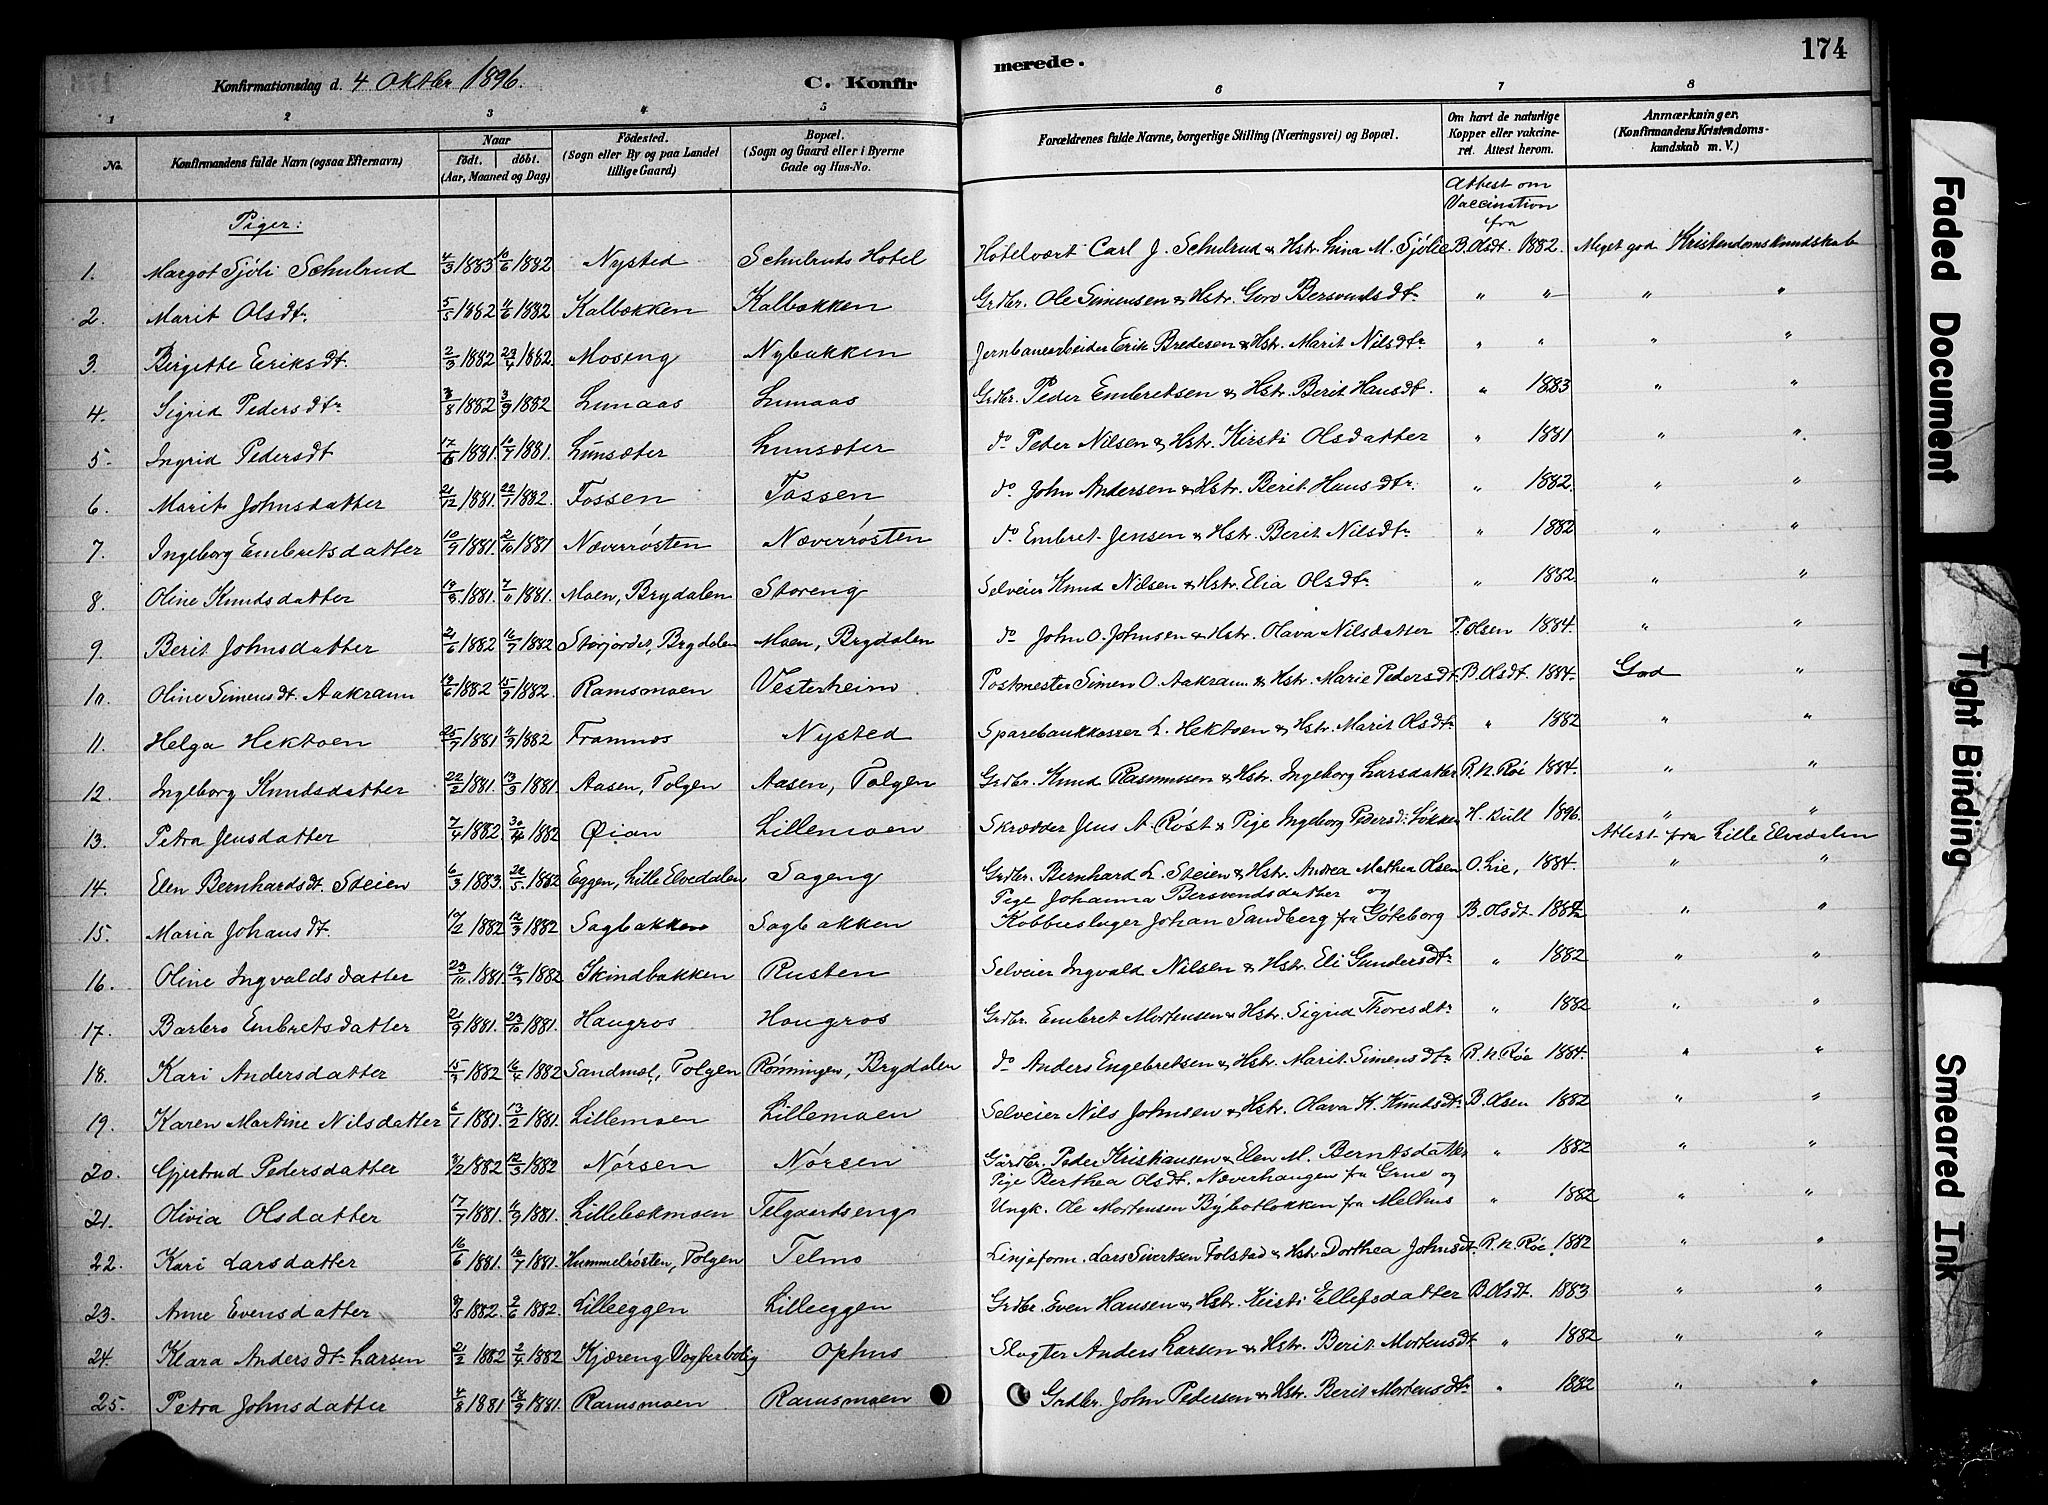 174
Konfirmationsdag d. 4 Oktbr 1896. C. Konfirmerede.
1 2 3 4 5 6 7 8
No. Konfirmandens fulde Navn (ogsaa Efternavn) Naar født. døbt. (Aar, Maaned og Dag) Fødested. (Sogn eller By og paa Landet tillige Gaard) Bopæl. (Sogn og Gaard eller i Byerne Gade og Hus-No. Forældrenes fulde Navne, borgerlige Stilling (Næringsvei) og Bopæl. Om havt de naturlige Kopper eller vaccineret. Attest herom. Anmærkninger. (Konfirmandens Kristendomskundskab m. V.)
Attest om Vaccination fra
Piger:
1. Margot Sjøli Schulrud 4/3 1883 10/6 1882 Nysted Schulruds Hotel Hotelvært Carl J. Schulrud & Hstr. Lina M. Sjølie B. Olsdt. 1882. Meget god Kristendomskundskab
2. Marit Olsdtr. 5/5 1882 11/6 1882 Kalbækken Kalbækken Grdbr. Ole Simensen & Hstr. Goro Bersvendsdtr. " " " "
3. Birgitte Eriksdt. 2/3 1882 23/4 1882. Moseng Nybakken Jernbanearbeider Erik Bredesen & Hstr. Marit Nilsdtr. " " " "
4. Sigrid Pedersdtr. 3/8 1882 3/9 1882 Lunaas Lunaas Grdbr. Peder Embretsen & Hstr. Berit Hansdt. " 1883 " "
5. Ingrid Pedersdt 17/6 1881. 10/7 1881. Lunsæter Lunsæter do Peder Nilsen & Hstr. Kirsti Olsdatter " 1881 " "
6. Marit Johnsdatter 21/12 1881. 22/1 1882. Fossen Fossen do John Andersen & Hstr. Berit Hansdtr. " 1882. " "
7. Ingeborg Embretsdatter 10/9 1881. 2/10 1881 Næverrøsten Næverrøsten do Embret Jensen & Hstr. Berit Nilsdtr. " 1882 " "
8. Oline Knudsdatter 1881. 7/11 1881. Moen, Brydalen Storeng Selveier Knud Nilsen & Hstr. Elia Olsdtr. " 1882 " "
9. Berit Johnsdatter 21/6 1882 16/7 1882 Storjordet, Brydalen Moen, Brydalen do John O. Johnsen & Hstr. Olava Nilsdatter P. Olsen 1884. " "
10. Oline Simensdt. Aakrann 19/6 1882 15/9 1882. Ramsmoen Vesterheim Postmester Simen O. Aakrann & Hstr. Marie Pedersdt. B. Olsdt. 1884. God "
11. Helga Hektoen 25/7 1881 1882 Framnæs Nysted Sparebankkasser L. Hektoen & Hstr. Marit Olsdtr. " 1882 " "
12. Ingeborg Knudsdatter 22/2 1881. 13/3 1881. Aasen, Tolgen Aasen, Tolgen Grdbr. Knud Rasmussen & Hstr. Ingeborg Larsdatter R. N. Røe 1884. " "
13. Petra Jensdatter 7/4 1882 30/4 1882 Øian Lillemoen Skrædder Jens A. Røst & Pige Ingeborg Pedersdt. Løkken H. Bull 1896. " "
Attest fra Lille Elvedalen
14. Elen Bernhardsdt. Steien 6/3 1883. 1882 Eggen, Lille Elvedalen Sageng Grdbr. Bernhard L. Steien & Hstr. Andrea Mathea Olsen O. Lie, 1884. " "
Pige Johanna Bersvendsdatter og
15. Maria Johansdt. 1882 12/3 1882 Sagbakken Sagbakken Kobberslager Johan Sandberg fra Göteborg B. Olsdt. 1884 " "
16. Oline Ingvaldsdatter 23/10 1881. 1882 Skindbakken Rusten Selveier Ingvald Nilsen & Hstr. Eli Gundersdtr. " 1882 " "
17. Barbro Embretsdatter 21/9 1881. 23/10 1881. Haugros Haugros Grdbr. Embret Mortensen & Hstr. Sigrid Thoresdtr. " 1882 " "
18. Kari Andersdatter 15/3 1882 16/4 1882 Sandmæl, Tolgen Rønningen, Brydalen do Anders Engebretsen & Hstr. Marit Simensdtr. R. N. Røe 1884. " "
19. Karen Martine Nilsdatter 6/1 1881. 13/2 1881. Lillemoen Lillemoen Selveier Nils Johnsen & Hstr. Olava K. Knudsdtr. B. Olsen 1882 " "
20. Gjertrud Pedersdatter 8/2 1882 12/3 1882 Nørsen Nørsen Gårdbr. Peder Kristiansen & Elen M. Berntsdatter " 1882 " "
Pige Berthea Olsdt. Næverhaugen fra Grue og
21. Olivia Olsdatter 17/7 1881. 11/9 1881. Lillebækmoen Telgaardseng Ungk. Ole Mortensen Bybotløkken fra Melhus " 1882 " "
22. Kari Larsdatter 16/6 1881. 10/7 1881. Hummelrøsten, Tolgen Telmo Linjeform. Lars Sivertsen Folstad & Hstr Dorthea Johnsdt. R. N. Røe. 1882 " "
23. Anne Evensdatter 1882. 2/6 1882. Lilleeggen Lilleeggen Grdbr. Even Hansen & Hstr. Kirsti Ellefsdatter B. Olsdt. 1883 " "
24. Klara Andersdtr. Larsen 21/2 1882 2/4 1882 Kjæreng Vogterbolig Ophus Slagter Anders Larsen & Hstr. Berit Mortensdt. " 1882 " "
25. Petra Johnsdatter 4/8 1881 18/9 1881. Ramsmoen Ramsmoen Grdbr. John Pedersen & Hstr. Berit Mortensdtr. " 1882 " "
Faded Document
Tight Binding
Smeared Ink